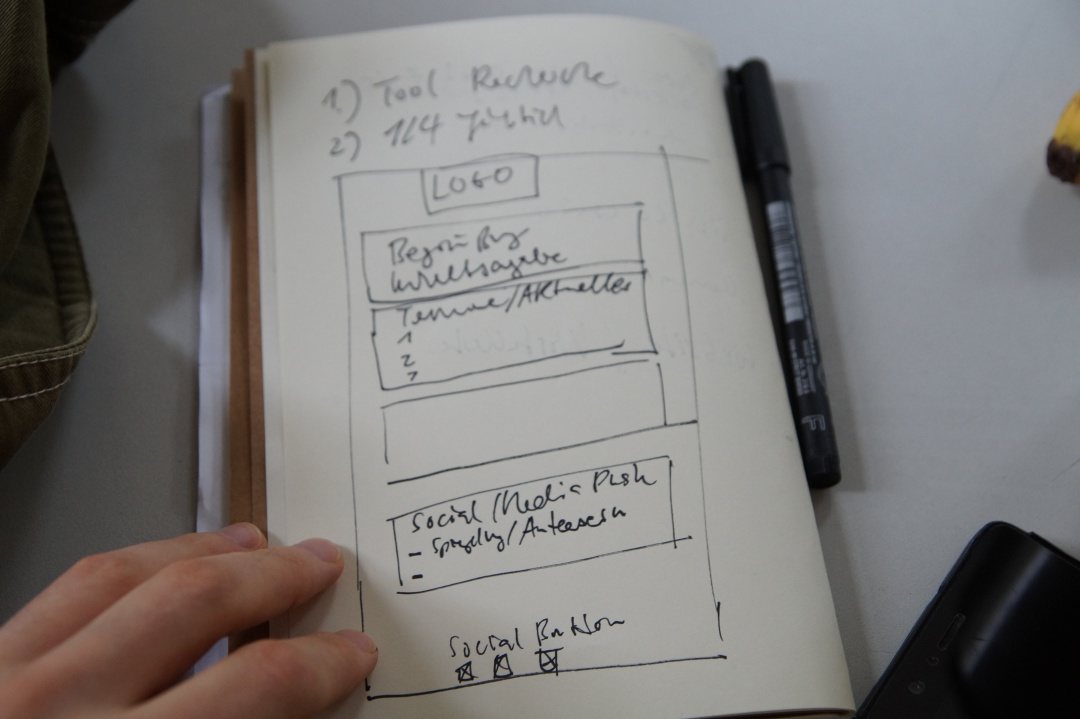 1) Tool Recherche
2) 1/4 jährlich
LOGO
Begrüßung
Inhaltsangabe
Termine/Aktuelles
1
2
3
Social/Media Push
- Spiegelung/Anteasern
-
Social Button
F